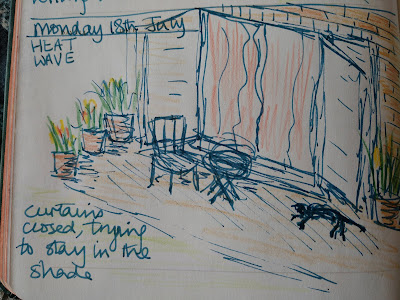 Monday 18th July
HEAT
WAVE
curtains
closed, trying
to stay in the
shade